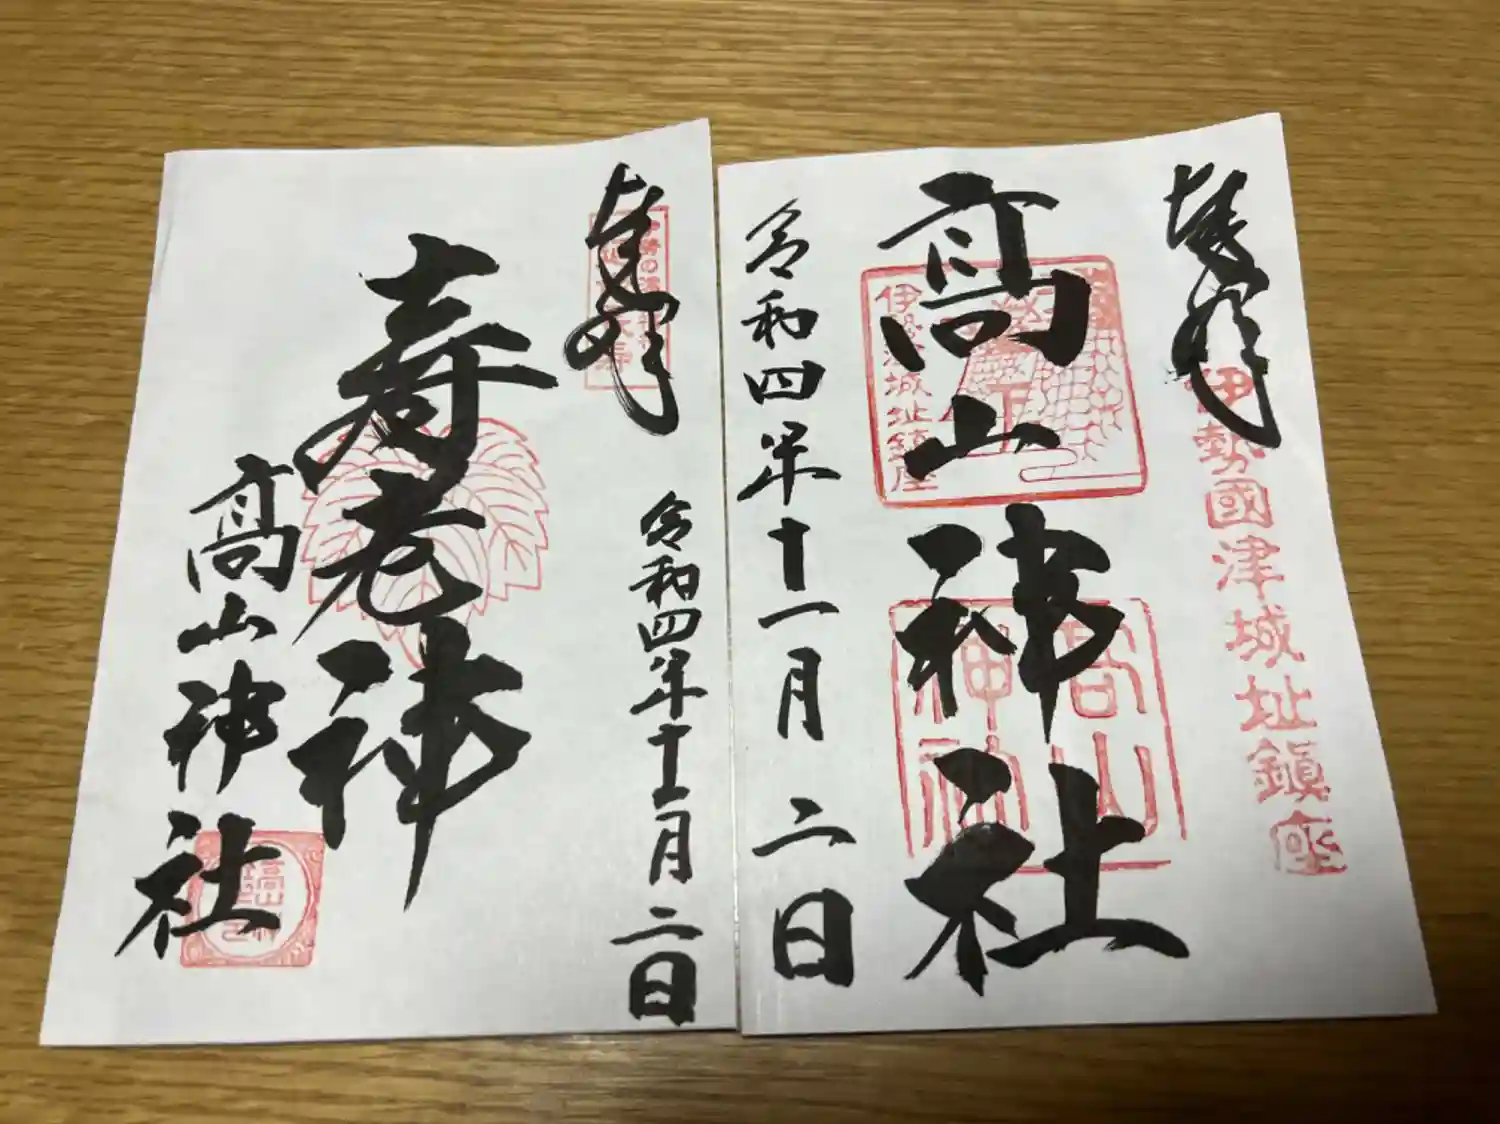 奉拝
伊勢國津城址鎮座
髙山神社
伊勢津城址鎮座
高山
神社
令和四年十一月二日
奉拝
寿老神
髙山神社
令和四年十一月二日